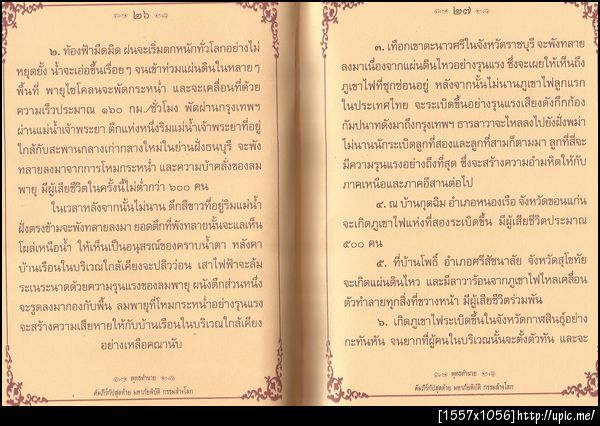 ๒๖
๒. ท้องฟ้ามืดมิด ฝนจะเริ่มตกหนักทั่วโลกอย่างไม่
หยุดยั้ง น้ำจะเอ่อขึ้นเรื่อยๆ จนเข้าท่วมแผ่นดินในหลายๆ
พื้นที่ พายุไซโคลนจะพัดกระหน่ำ และจะเคลื่อนที่ด้วย
ความเร็วประมาณ ๑๖๐ กม./ชั่วโมง พัดผ่านกรุงเทพฯ
ผ่านแม่น้ำเจ้าพระยา ตึกแห่งหนึ่งริมแม่น้ำเจ้าพระยาที่อยู่
ใกล้กับสะพานกลางเก่ากลางใหม่ในย่านฝั่งธนบุรี จะพัง
ทลายลงมาจากการโหมกระหน่ำ และความบ้าคลั่งของลม
พายุ มีผู้เสียชีวิตในครั้งนี้ไม่ต่ำกว่า ๖๐๐ คน
ในเวลาหลังจากนั้นไม่นาน ตึกสีขาวที่อยู่ริมแม่น้ำ
ฝั่งตรงข้ามจะพังทลายลงมา ยอดตึกที่พังทลายนั้นจะแลเห็น
โผล่เหนือน้ำ ให้เห็นเป็นอนุสรณ์ของคราบน้ำตา หลังคา
บ้านเรือนในบริเวณใกล้เคียงจะปลิวว่อน เสาไฟฟ้าจะล้ม
ระเนระนาดด้วยความรุนแรงของลมพายุ ผนังตึกส่วนหนึ่ง
จะรูดลงมากองกับพื้น ลมพายุที่โหมกระหน่ำอย่างรุนแรง
จะสร้างความเสียหายให้กับบ้านเรือนในบริเวณใกล้เคียง
อย่างเหลือคณานับ
พุทธทำนาย
คัมภีร์กัปสุดท้าย มหาภัยพิบัติ กรรมล้างโลก
๒๗
๓. เทือกเขาตะนาวศรีในจังหวัดราชบุรี จะพังทลาย
ลงมาเนื่องจากแผ่นดินไหวอย่างรุนแรง ซึ่งจะเผยให้เห็นถึง
ภูเขาไฟที่ซุกซ่อนอยู่ หลังจากนั้นไม่นานภูเขาไฟลูกแรก
ในประเทศไทย จะระเบิดขึ้นอย่างรุนแรงเสียงดังกึกก้อง
กัมปนาทดังมาถึงกรุงเทพฯ ธารลาวาจะไหลลงไปยังฝั่งพม่า
ไม่นานนักระเบิดลูกที่สองและลูกที่สามก็ตามมา ลูกที่สี่จะ
มีความรุนแรงอย่างถึงที่สุด ซึ่งจะสร้างความอำมหิตให้กับ
ภาคเหนือและภาคอีสานต่อไป
๔. ณ บ้านกุดฉิม อำเภอหนองเรือ จังหวัดขอนแก่น
จะเกิดภูเขาไฟแห่งที่สองระเบิดขึ้น มีผู้เสียชีวิตประมาณ
๕๐๐ คน
๕. ที่บ้านโพธิ์ อำเภอศรีสัชนาลัย จังหวัดสุโขทัย
จะเกิดแผ่นดินไหว และมีลาวาร้อนจากภูเขาไฟไหลเคลื่อน
ตัวทำลายทุกสิ่งที่ขวางหน้า มีผู้เสียชีวิตร่วมพัน
๖. เกิดภูเขาไฟระเบิดขึ้นในจังหวัดกาฬสินธุ์อย่าง
กะทันหัน จนยากที่ผู้คนในบริเวณนั้นจะตั้งตัวทัน และจะ
พุทธทำนาย
คัมภีร์กัปสุดท้าย มหาภัยพิบัติ กรรมล้างโลก
[1557x1056]http://upic.me/